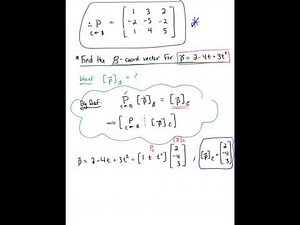 ∴ P C←B = [ 1 3 2 ; -2 -5 -2 ; 1 4 5 ] *
* Find the B-coord vector for p = 2-4t+3t²
Want [p]_B = ?
By Def: P C←B [p]_B = [p]_C
[ P C←B ⋮ [p]_C ]
p = 2-4t+3t² = [1 t t²] [ 2 ; -4 ; 3 ] , [p]_C = [ 2 ; -4 ; 3 ]